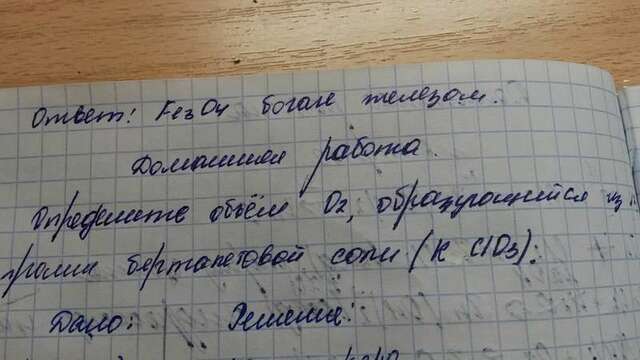 Ответ: Fe3O4 богаче железом.
Домашняя работа.
Определите объём O2, образующийся из
бертолетовой соли (K ClO3):
Дано: Решение: